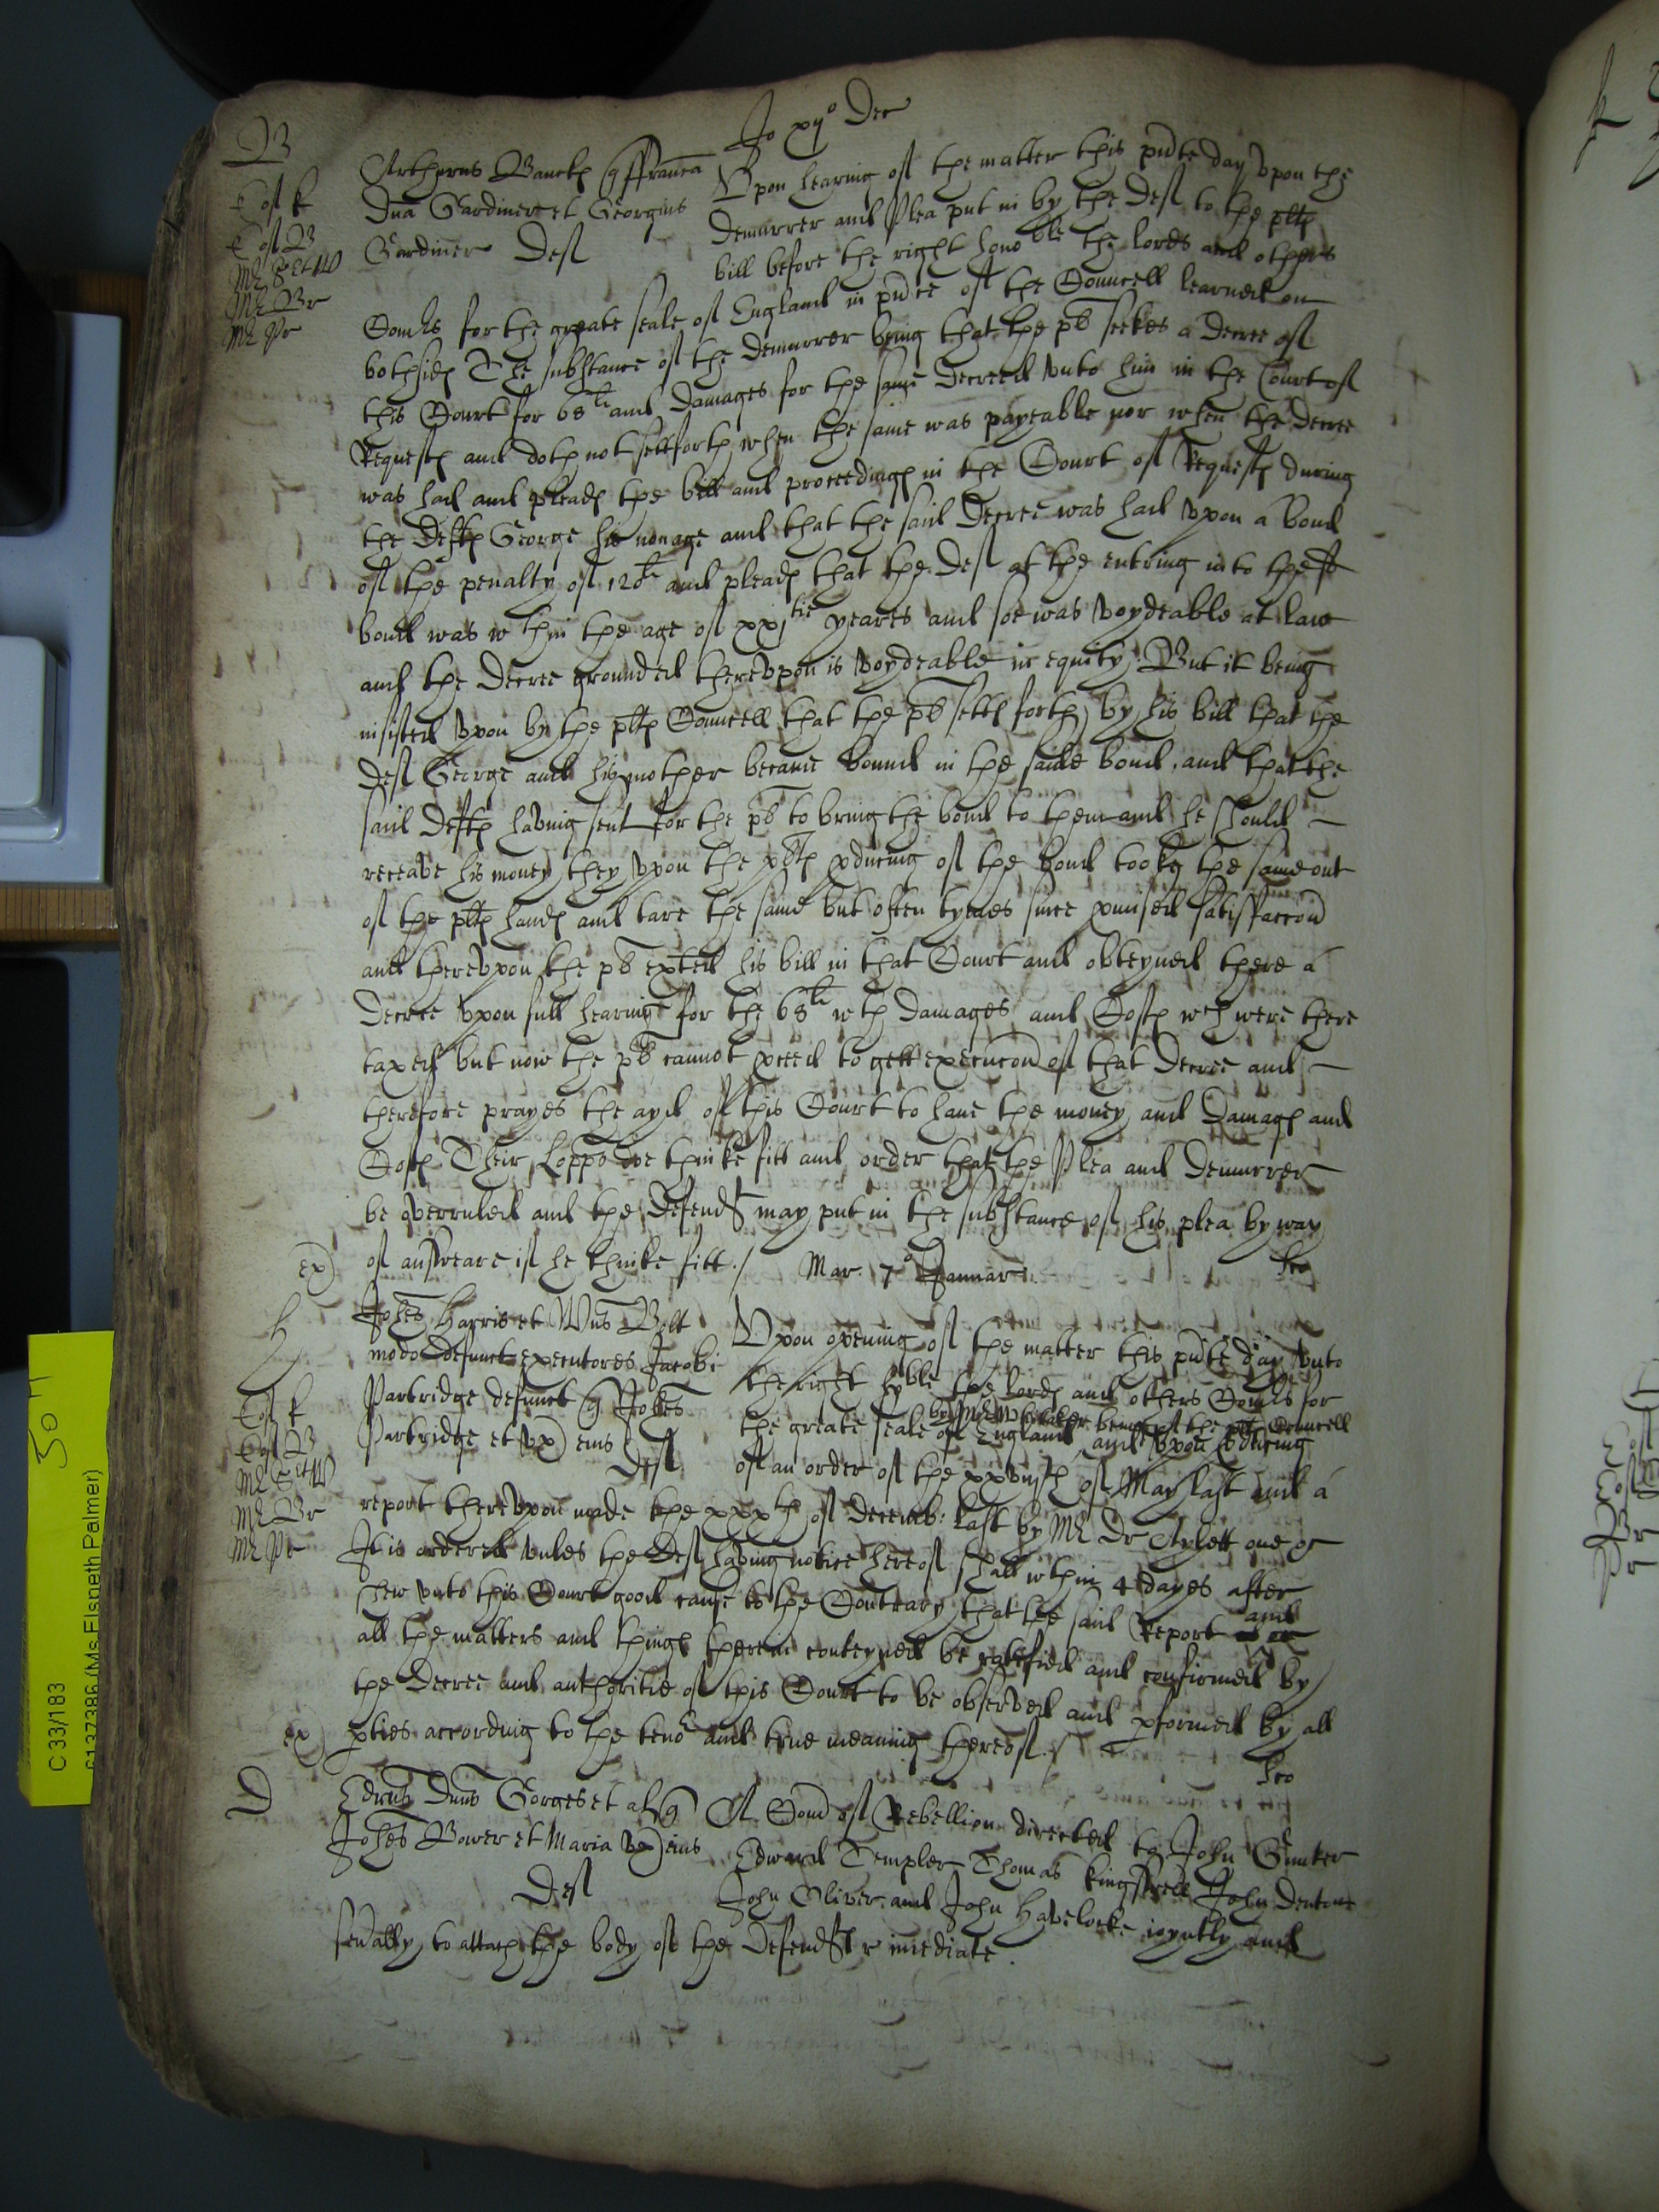 Jo xij° Dec
B
E of K
E of B
Mr S et W
Mr Br
Mr Pr
Arthurus Banckes q ffranca
Dna Gardiner et Georgius
Gardiner Def
Upon hearing of the matter this pnte day vpon the
demurrer and plea put in by the def to the pltes
bill before the right hono ble the lords and others
Comrs for the greate seale of England in pnce of the Councell learned on
bothsides The substance of the demurrer being that the pl seekes a decree of
this Court for 68li and damages for the same decreed vnto him in the Court of
Requests and doth not settforth when the same was payeable nor when the decree
was had and pleads the bill and proceedings in the Court of Requests during
the Deftes George his nonage and that the said decree was had vpon a bond
of the penalty of 120li and pleads that the Def at the entring into the sd
bond was wthin the age of xxj tie yeares and soe was voydeable at law
and the decree grounded therevpon is voydeable in equity. But it being
insisted vpon by the pltes Councell that the pl setts forth by his bill that the
def George and his mother became bound in the saide bond, and that the
said deftes having sent for the pl to bring the bond to them and he should
receave his money they vpon the pltes pducing of the bond tooke the same out
of the pltes hands and tare the same but often tymes since pmised satisfaccon
and therevpon the pl exhted his bill in that Court and obteyned there a
decree vpon full hearing for the 68li wth damages and Costs wch were there
taxed but now the pl cannot pceed to gett execucon of that decree and
therefore prayes the ayd of this Court to have the money and damages and
Costs Their Lopps doe thinke fitt and order that the plea and demurrer
be overruled and the defendt may put in the substance of his plea by way
of answeare if he thinke fitt. /
ex
Mar. 7° Januar
H
E of K
E of B
Mr S et W
Mr Br
Mr Pr
Johes Harris et Wms Bolt
modo defunct executores Jacobi
Partridge defunct q Johes
Partridge et vx eius
Def
Upon opening of the matter this pnte day vnto
the right hoble the lords and others Comrs for
by Mr being of the plt Councell
the greate seale of England and vpon pducing
of an order of the xxviijth of May last and a
report therevpon made the xxxth of Decemb: last by Mr Dr Aylett one &c
It is ordered vnles the Def having notice hereof shall wthin 4 dayes after
shew vnto this Court good cause to the Contrary that the said Report and
all the matters and things therein conteyned be ratefied and confirmed by
the decree and authoritie of this Court to be observed and pformed by all
pties according to the teno and true meaning thereof. /
ex
D
Edrus Dnus Gorges et al q
Johes Bower et Maria vx eius
Def
A Com of Rebellion directed to John Gunter
Edward Templer Thomas Kingswell John Denton
John Oliver and John Havelocke ioyntly and
sevally to attach the body of the Defendt r imediate.
C 33/183
(Ms Elspeth Palmer)